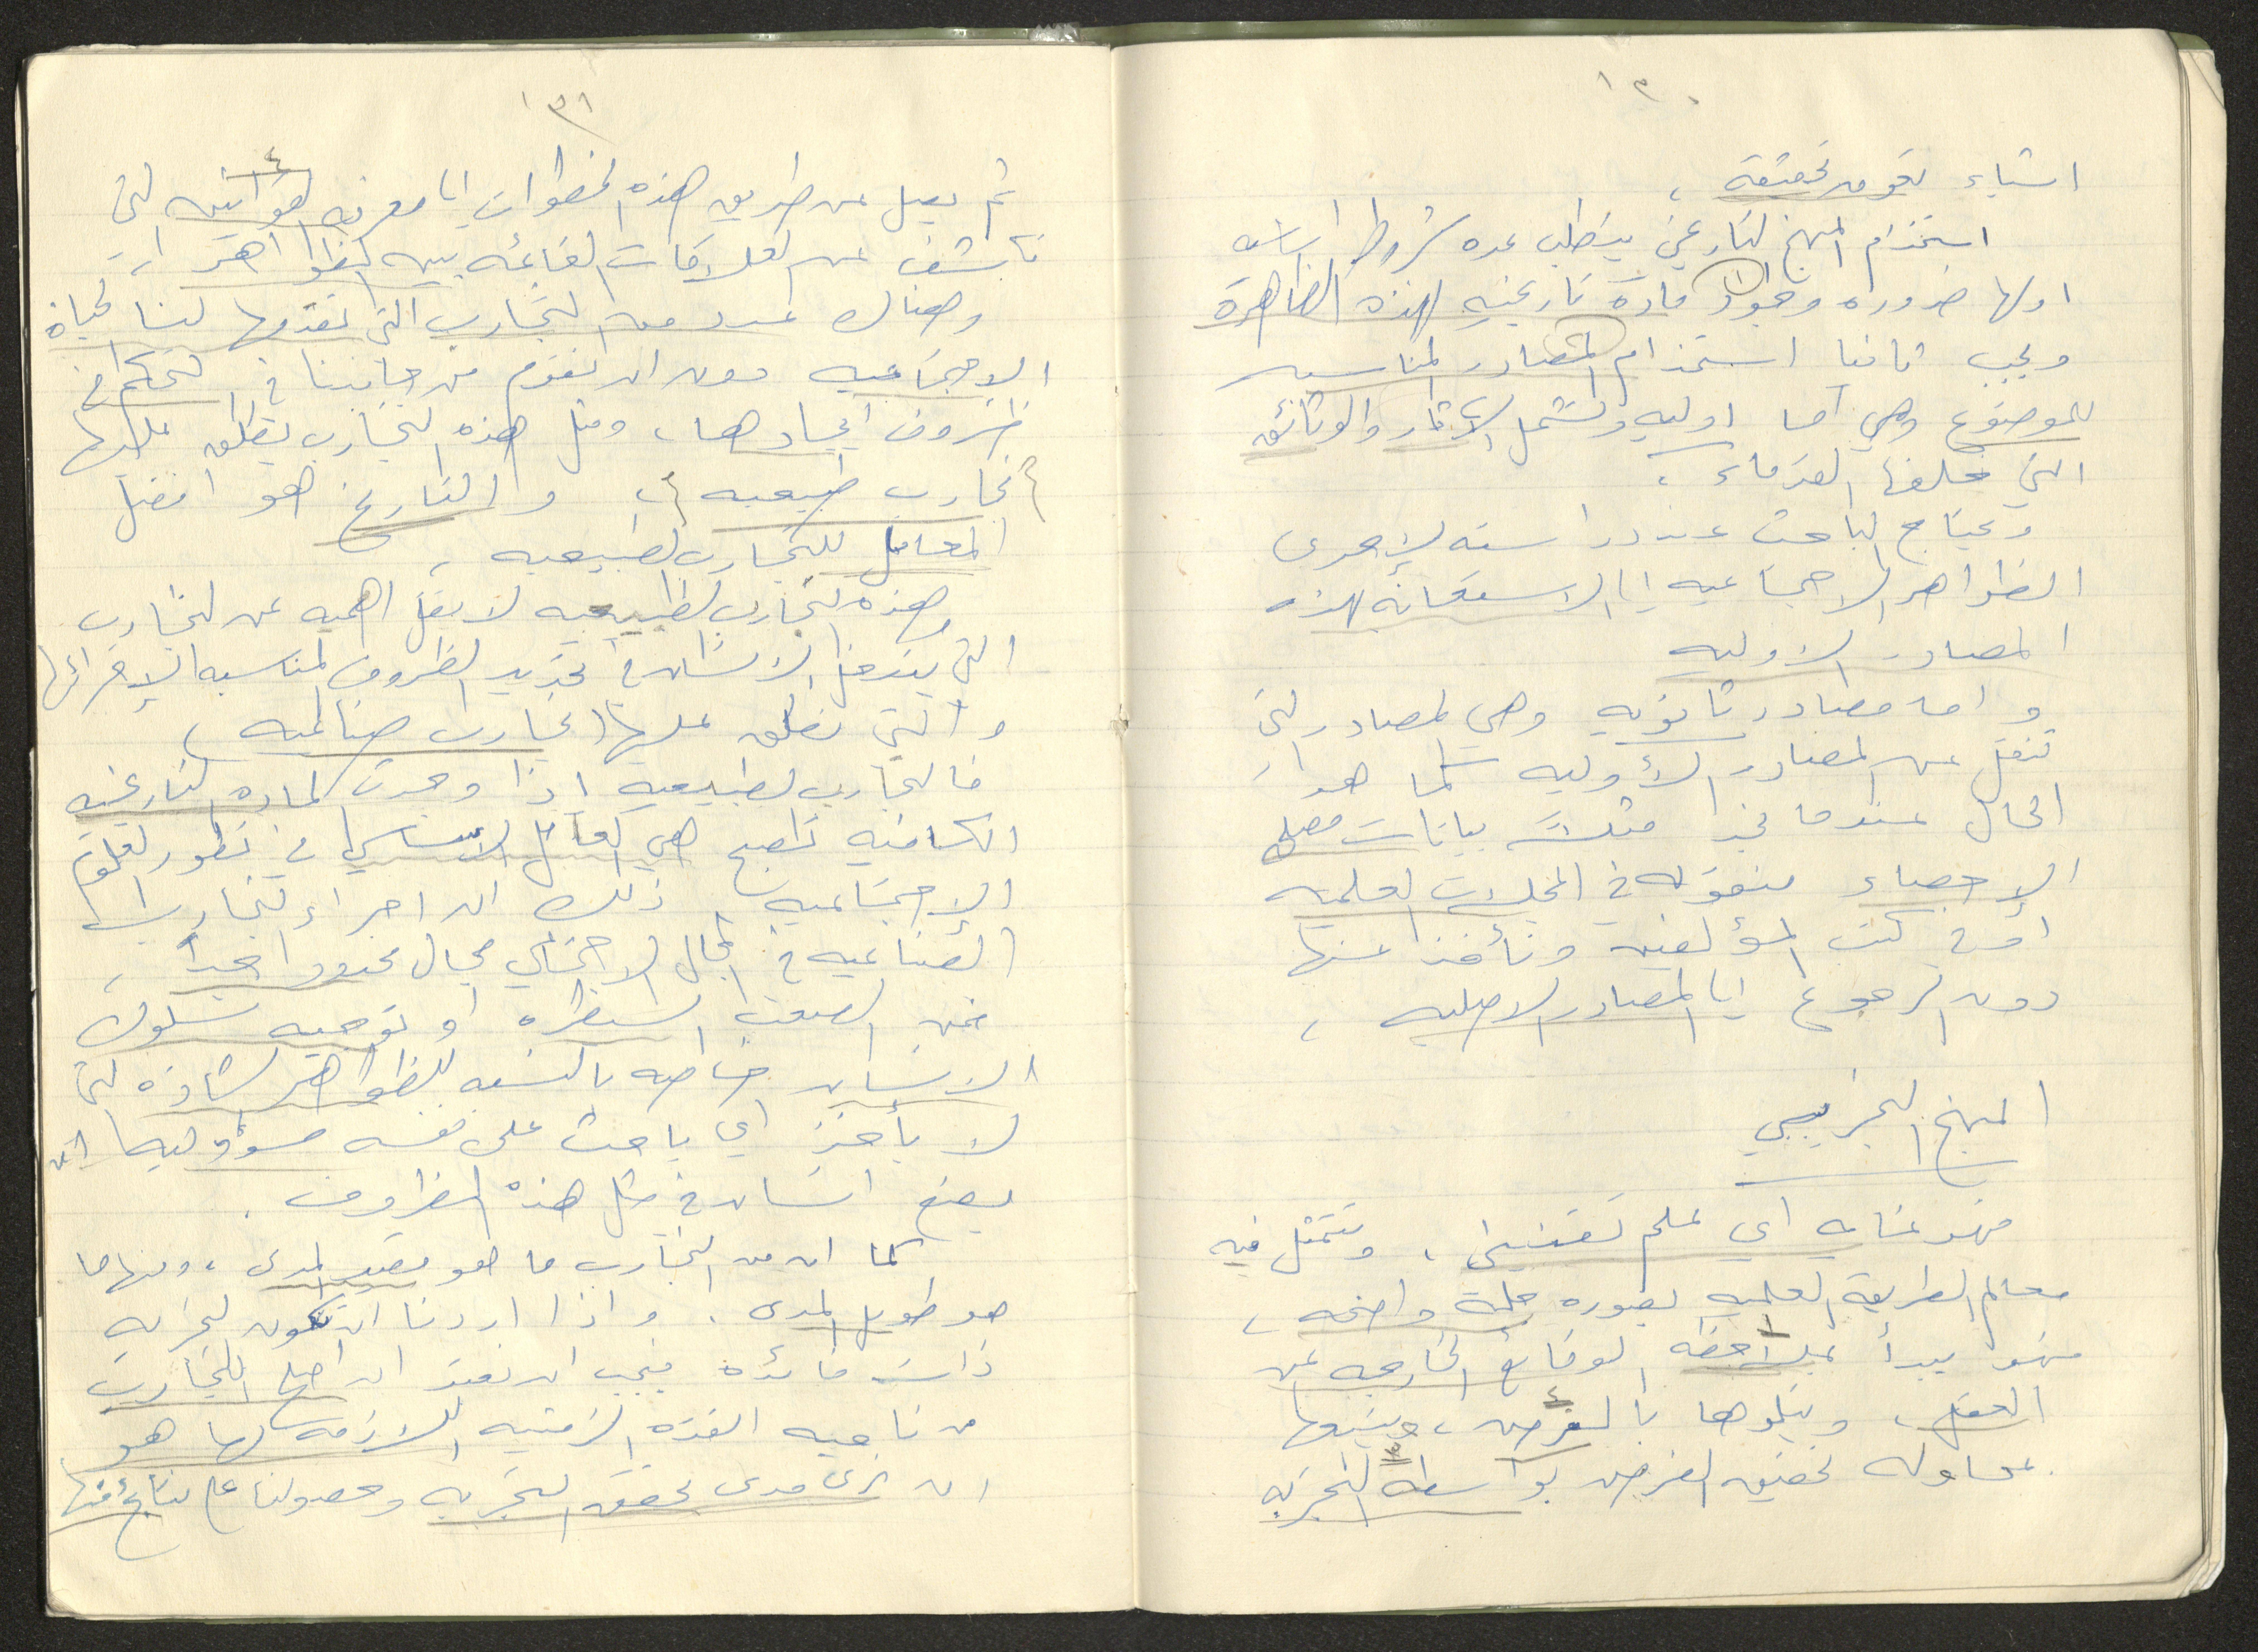 ١٣٠
اشياء تعوق تحقيقه ،
استخدام المنهج التاريخي يتطلب عده شروط اساسيه
اولها ضروره وجود ١ مادة تاريخيه لهذه الظاهرة
ويجب ثانيا استخدام المصادر المناسبه
للموضوع وهي اما اوليه وتشمل الاثار والوثائق
التي خلفها القدماء ،
ويحتاج الباحث عند دراسته لإحدى
الظواهر الاجتماعيه الى الاستعانه بهذه
المصادر الاوليه
واما مصادر ثانويه وهي المصادر التي
تنقل عن المصادر الأوليه كما هو
الحال عندما نجد مثلا بيانات مصلحة
الإحصاء منقوله في المجلات العلميه
او في كتب المؤلفين ونأخذ عنها
دون الرجوع الى المصادر الاصليه ،
المنهج التجريبي
فهو غايه اي علم تفسيري ، وتتمثل فيه
معالم الطريقة العلميه بصوره جليه واضحه ،
فهو يبدأ بملاحظه ١ الوقائع الخارجه عن
العقل ، ويتلوها بالفرض ٢ ، ويتبعها
بمحاوله تحقيق الفرض بواسطه ٣ التجربه
١٣١
ثم يصل عن طريق هذه الخطوات الى معرفه القوانين ٤ التي
تكشف عن العلاقات القائمه بين الظواهر
وهناك عدد من التجارب التي تقدمها لنا الحياة
الاجتماعيه دون ان نقوم من جانبنا في التحكم في
ظروف ايجادها ، ومثل هذه التجارب يطلق عليها
( تجارب طبيعيه ) ، والتاريخ هو افضل
المعامل للتجارب الطبيعيه ،
وهذه التجارب الطبيعيه لا تقل اهميه عن التجارب
التي يتدخل الانسان في تحديد الظروف المناسبه لإجرائها
والتي نطلق عليها ( تجارب صناعيه )
فالتجارب الطبيعيه اذا وجدت الماده التاريخيه
الكافيه تصبح هي العامل الاساسي في تطور العلوم
الاجتماعيه ، ذلك ان اجراء التجارب
الصناعيه في المجال الاجتماعي مجال محدود جداً ،
فمن الصعب السيطره او توجيه سلوك
الانسان خاصه بالنسبه للظواهر الشاذه التي
لا يأخذ اي باحث على نفسه مسؤوليه ان
يضع انسان في مثل هذه الظروف .
كما ان من التجارب ما هو قصير المدى ، ومنها ما
هو طويل المدى . واذا اردنا ان تكون التجربه
ذات فائده فيجب ان نعتبر ان اصلح التجارب
من ناحيه الفتره الزمنيه اللازمه لها هو
ان نرى مدى تحقق التجربه وحصولنا على نتائج منها